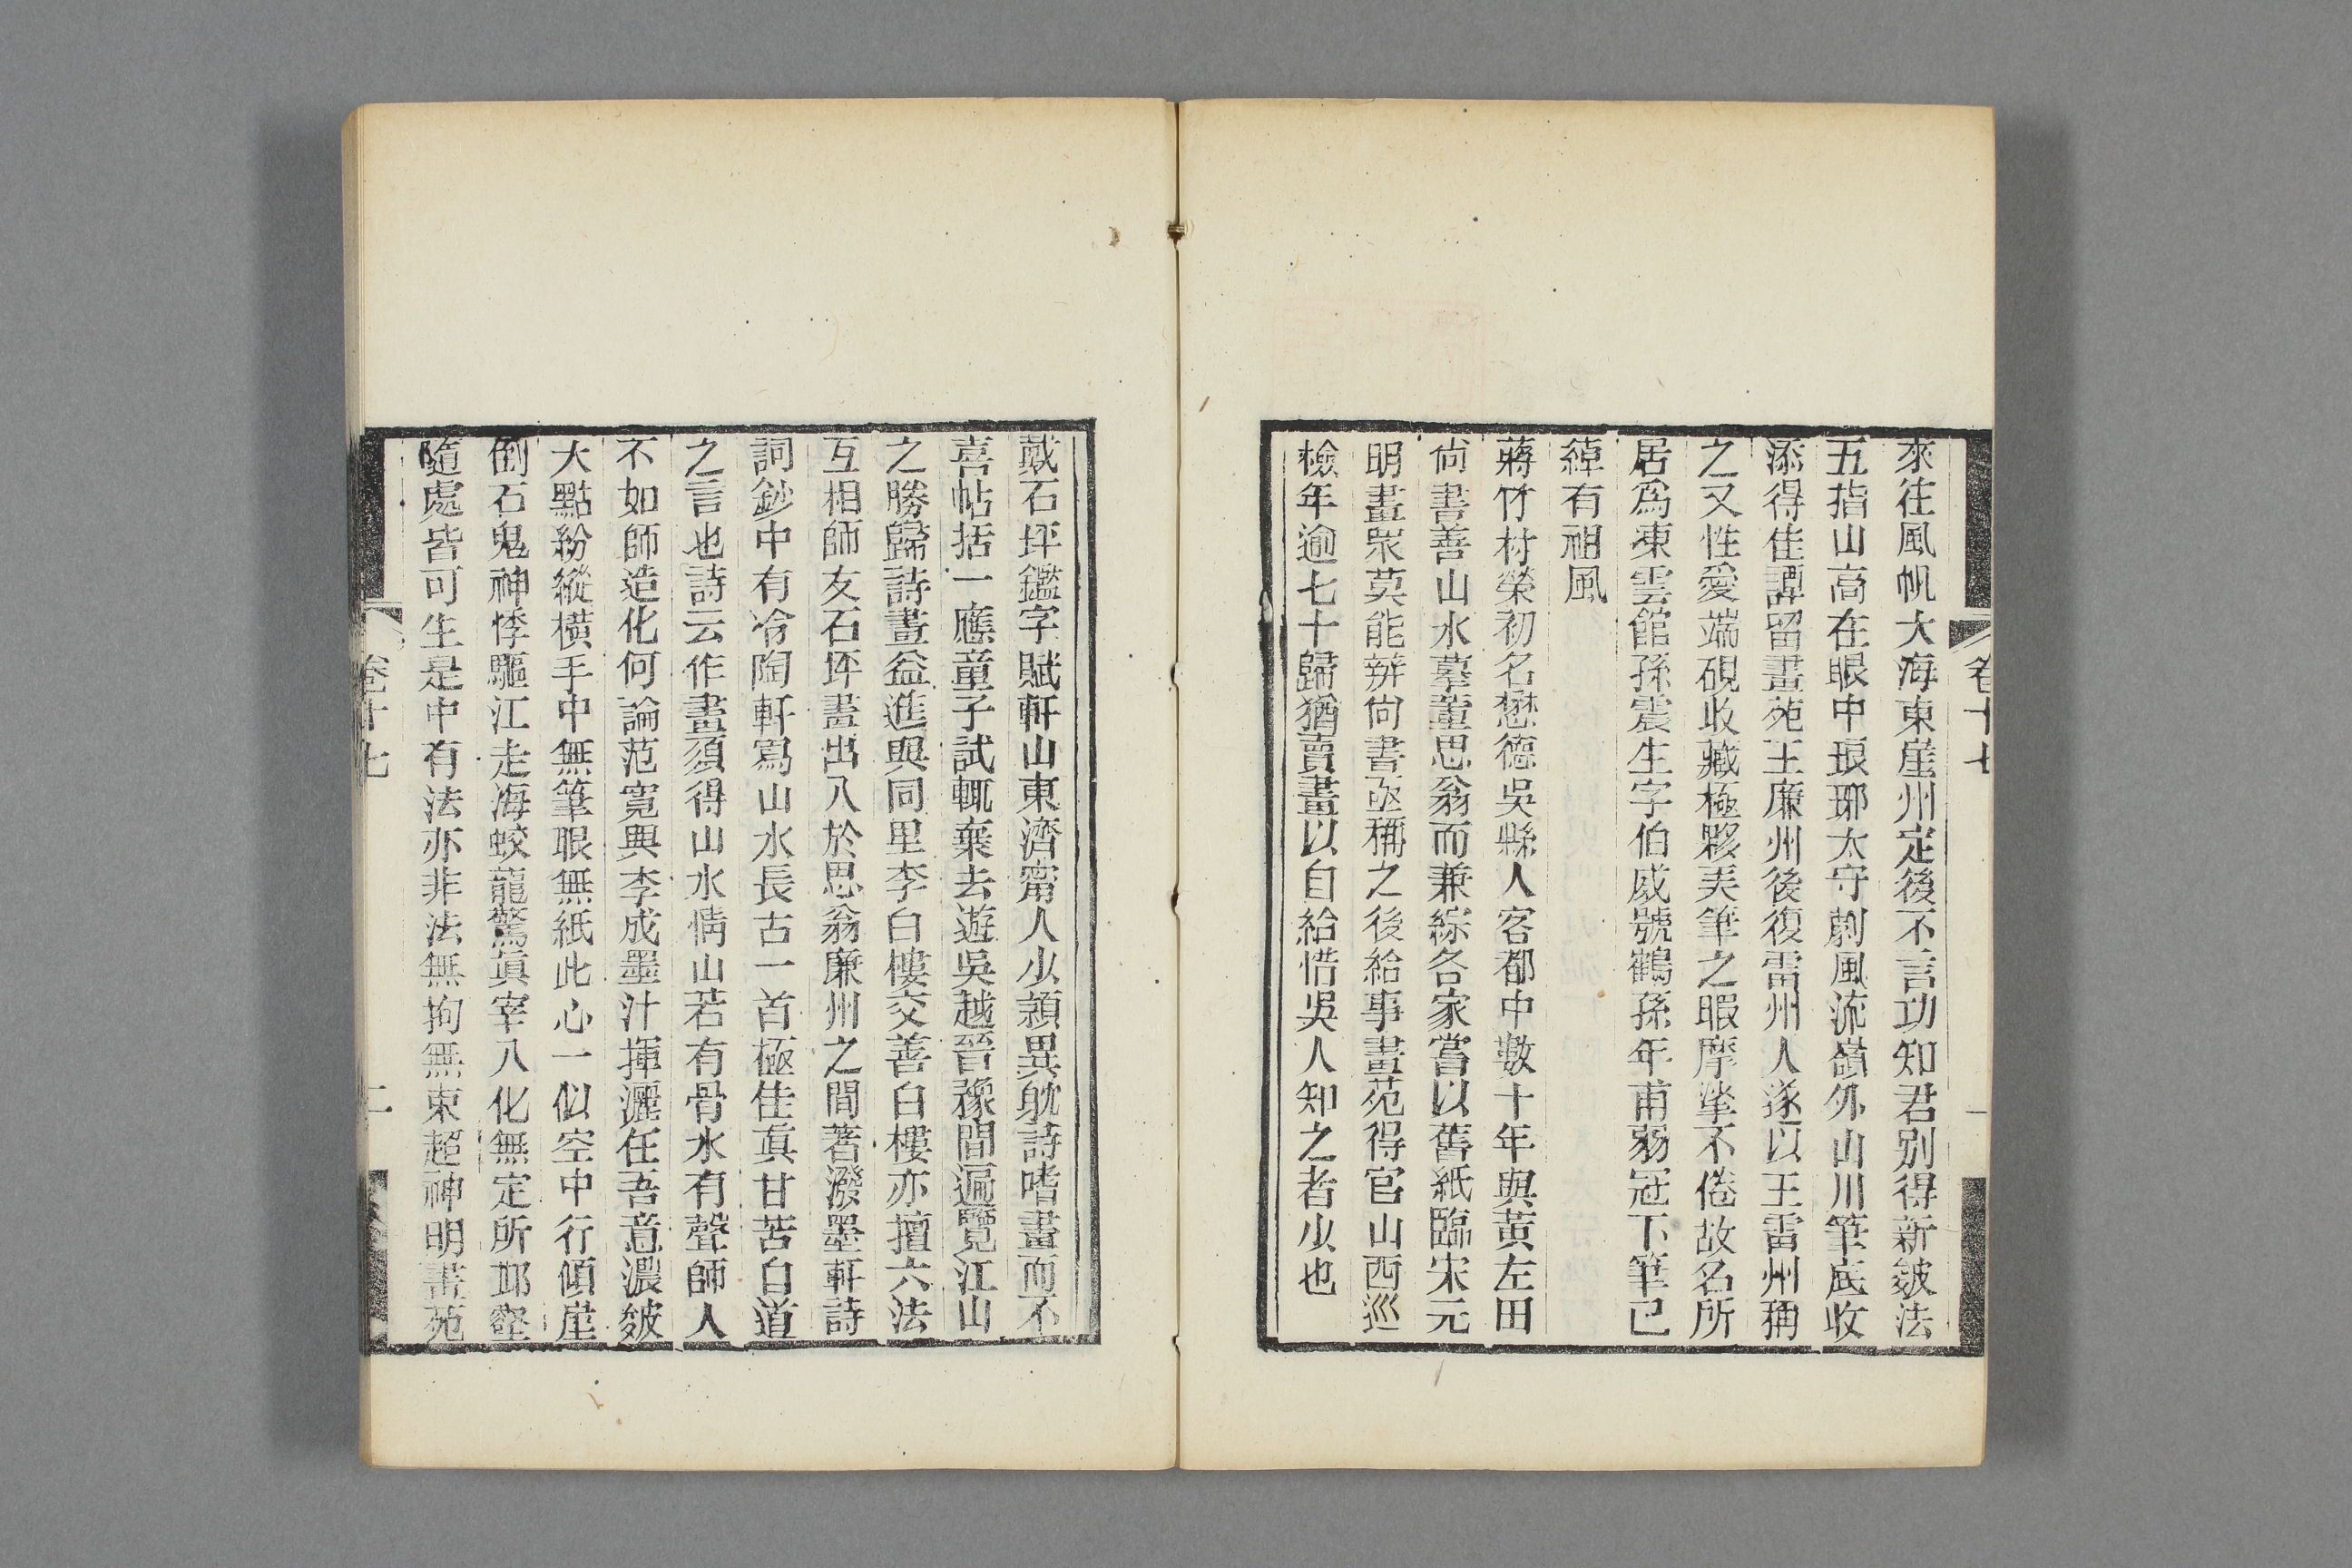 來往風帆大海東崖州定後不言功知君别得新皴法
五指山高在眼中琅琊太守剷風流嶺外山川筆底收
添得佳譚留畫苑王廉州後復雷州人遂以王雷州稱
之又性愛端硯收藏極夥美筆之暇摩挲不倦故名所
居爲凍雲館孫震生字伯威號鶴孫年甫弱冠下筆已
綽有祖風
蔣竹村榮初名懋德吳縣人客都中數十年與黃左田
尙書善山水摹董思翁而兼綜各家嘗以舊紙臨宋元
明畫衆莫能辨尙書亟稱之後給事畫苑得官山西巡
檢年逾七十歸猶賣畫以自給惜吳人知之者少也
卷十七
一
戴石坪鑑字賦軒山東濟甯人少穎異躭詩嗜畫而不
喜帖括一應童子試輒棄去遊吳越晉豫間遍覽江山
之勝歸詩畫益進與同里李白樓交善白樓亦擅六法
互相師友石坪畫出入於思翁廉州之間著潑墨軒詩
詞鈔中有冷陶軒寫山水長古一首極佳眞甘苦白道
之言也詩云作畫須得山水情山若有骨水有聲師人
不如師造化何論范寬與李成墨汁揮灑任吾意濃皴
大點紛縱橫手中無筆眼無紙此心一似空中行傾崖
倒石鬼神悸驅江走海蛟龍驚眞宰入化無定所邱壑
隨處皆可生是中有法亦非法無拘無束超神明畫苑
卷十七
二